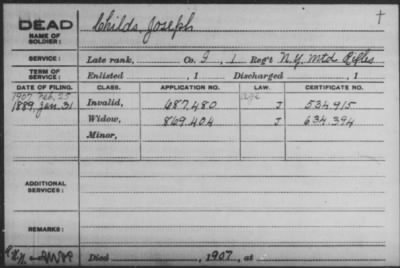 DEAD
NAME OF SOLDIER: Childs, Joseph
SERVICE: Late rank, Co. I, 1 Reg't N.Y. Mtd Rifles
TERM OF SERVICE: Enlisted , 1 Discharged , 1
DATE OF FILING. CLASS. APPLICATION NO. LAW. CERTIFICATE NO.
1907 Feb, 25
1889, Jan. 31 Invalid, 687,480 J 534,915
Widow, 869,404 J 634,394
Minor,
ADDITIONAL SERVICES:
REMARKS:
Died , 1907, at